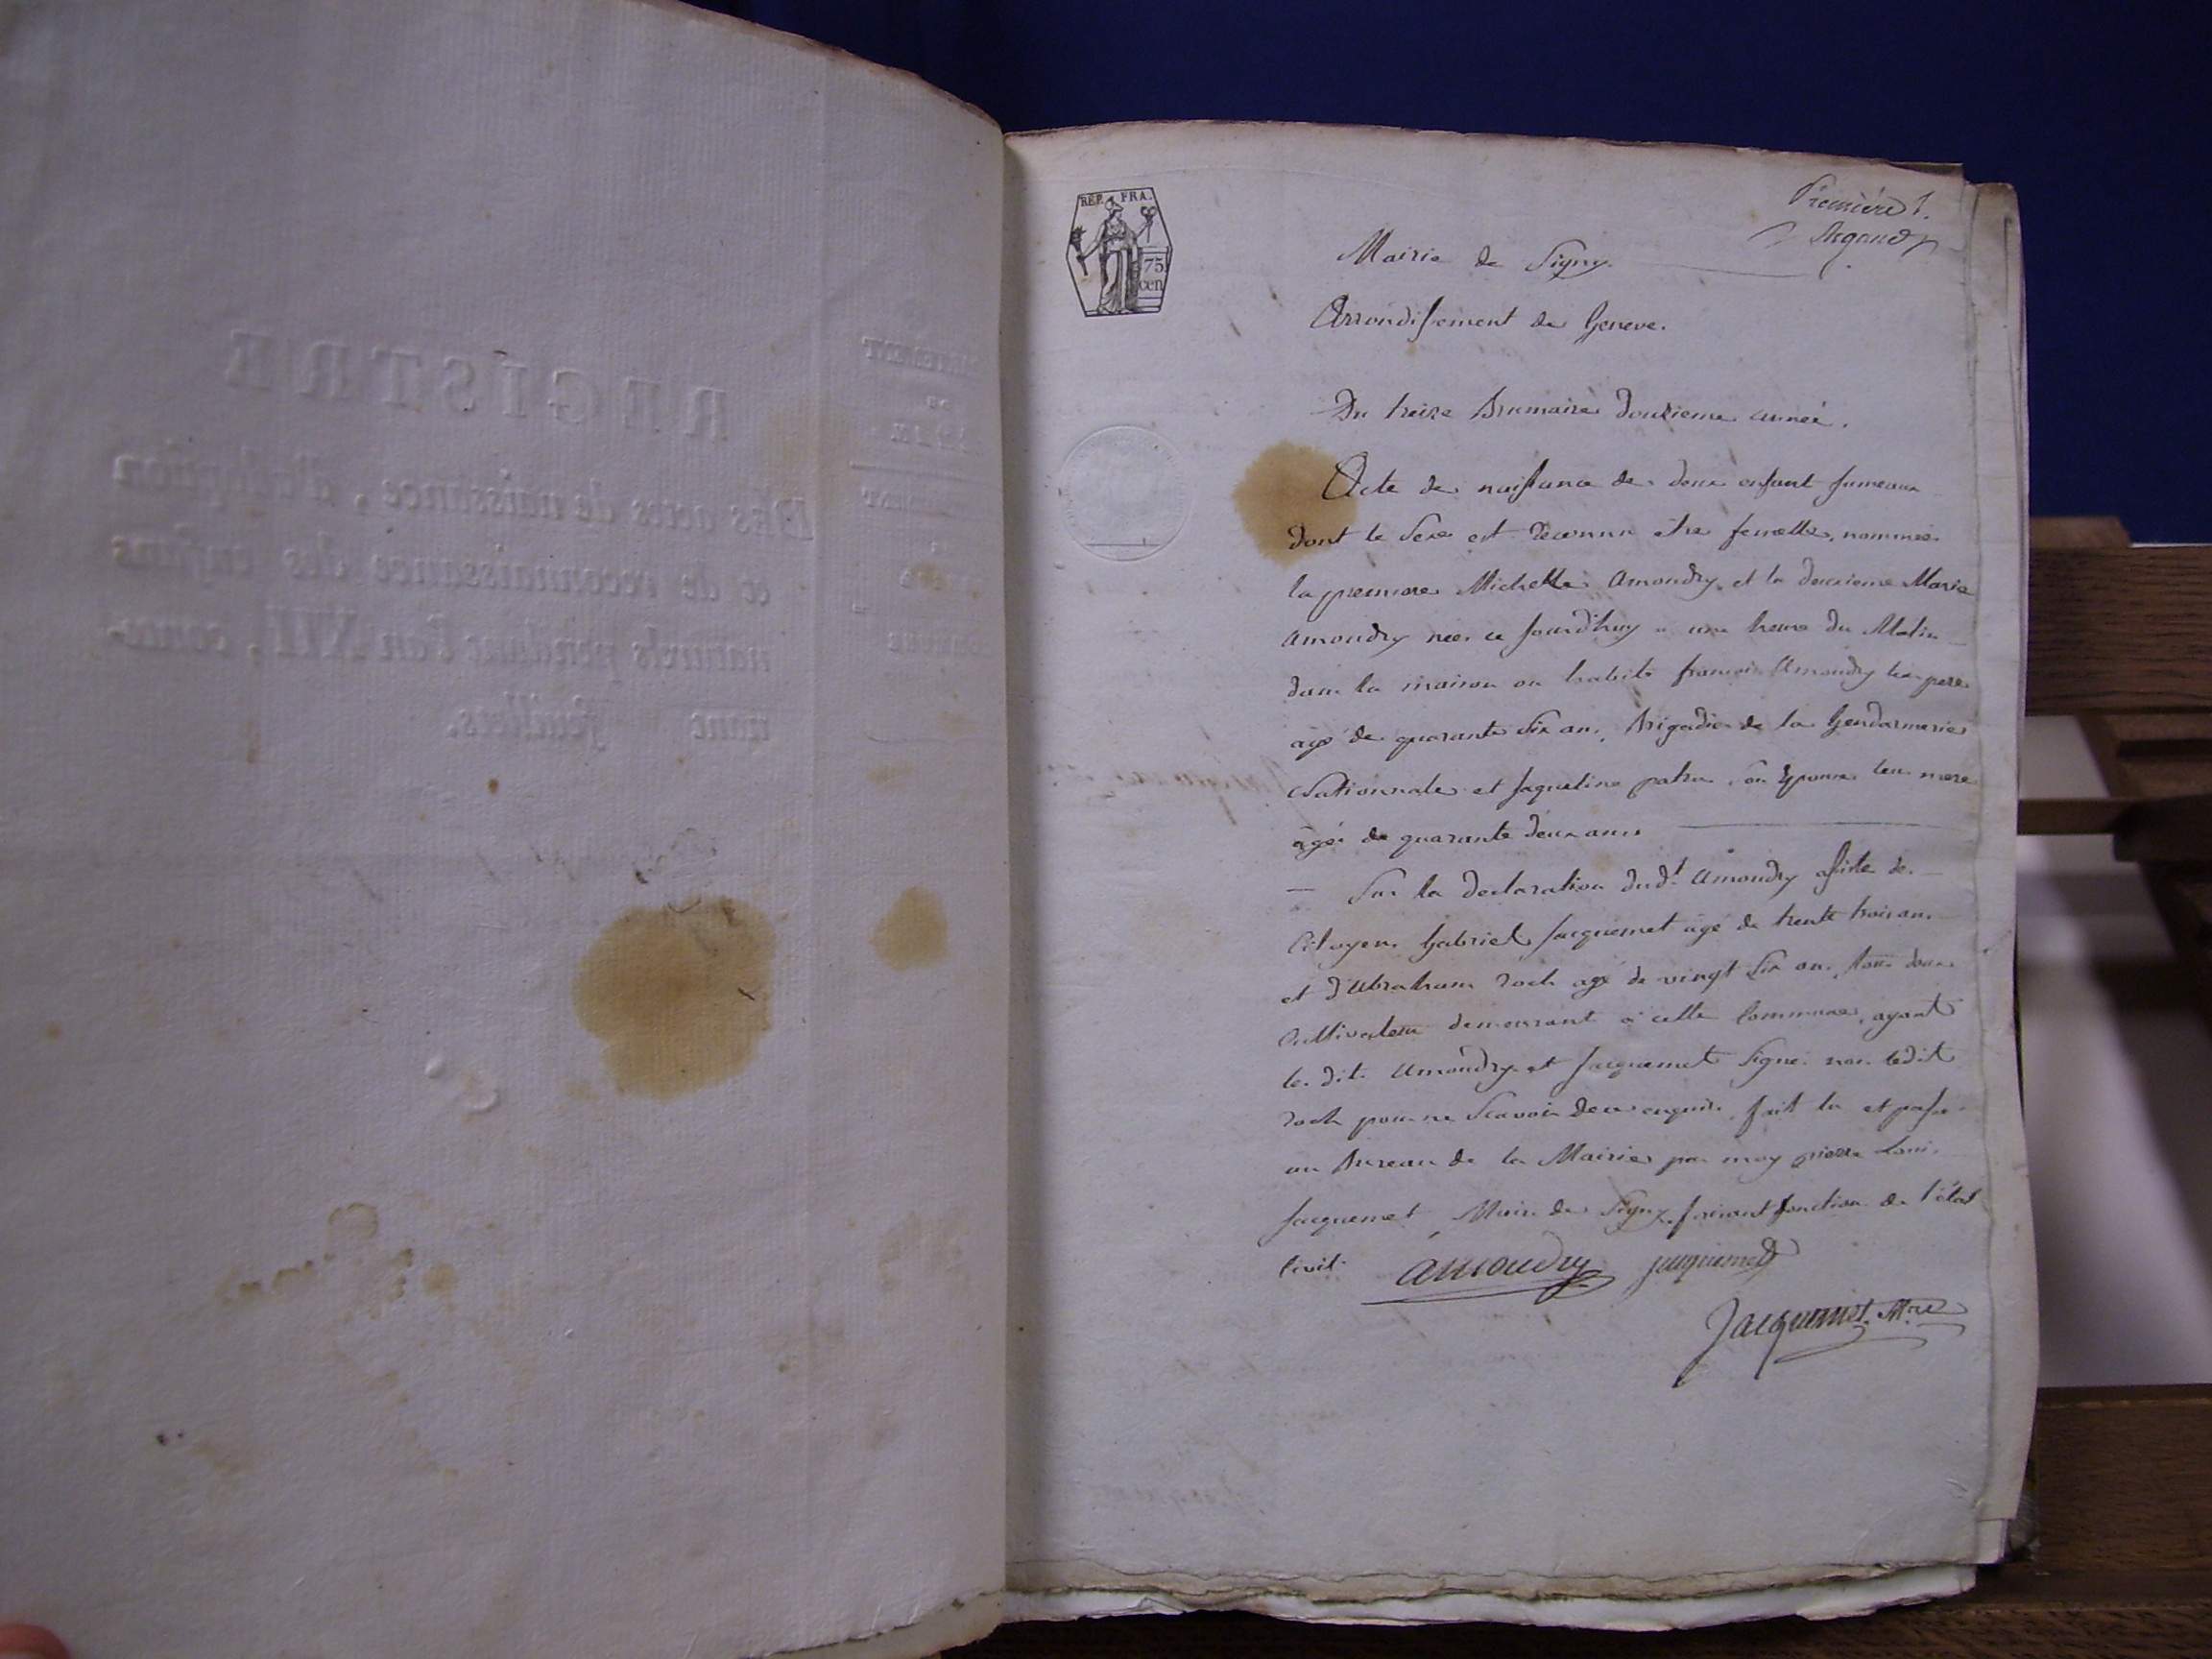 REGISTRE
Des actes de naissance, d'adoption
et de reconnaissance des enfans
naturels pendant l'an XII, conte-
nant feuillets.
REP. FRA.
75
cen
Première 1.
Argand
Mairie de Signy
Arrondissement de Geneve.
Du treize Brumaire Douzieme année.
Acte de naissance de deux enfant jumeaux
dont le sexe est Reconnu etre femelles, nommées
la premiere Michelle Amoudry et la deuxieme Marie
amoudry nées ce jourd'huy a une heure du Matin
dans la maison ou habite francois Amoudry leur pere
agé de quarante six ans, Brigadier de la Gendarmerie
Nationnale et Jaqueline patru son Epouse leur mere
agée de quarante deux ans
Sur la declaration dudt. Amoudry assisté des
Citoyens Gabriel Jacquemet agé de trente trois ans
et d'Abraham roch agé de vingt six ans tous deux
Cultivateur demeurant a cette Commune, ayant
les dits Amoudry et Jacquemet signé non ledit
roch pour ne scavoir de ce enquis, fait lu et passé
au Bureau de la Mairie par moy pierre Louis
Jacquemet Maire de Signy faisant fonction de l'état
Civil. amoudry jacquemet
Jacquemet Mre